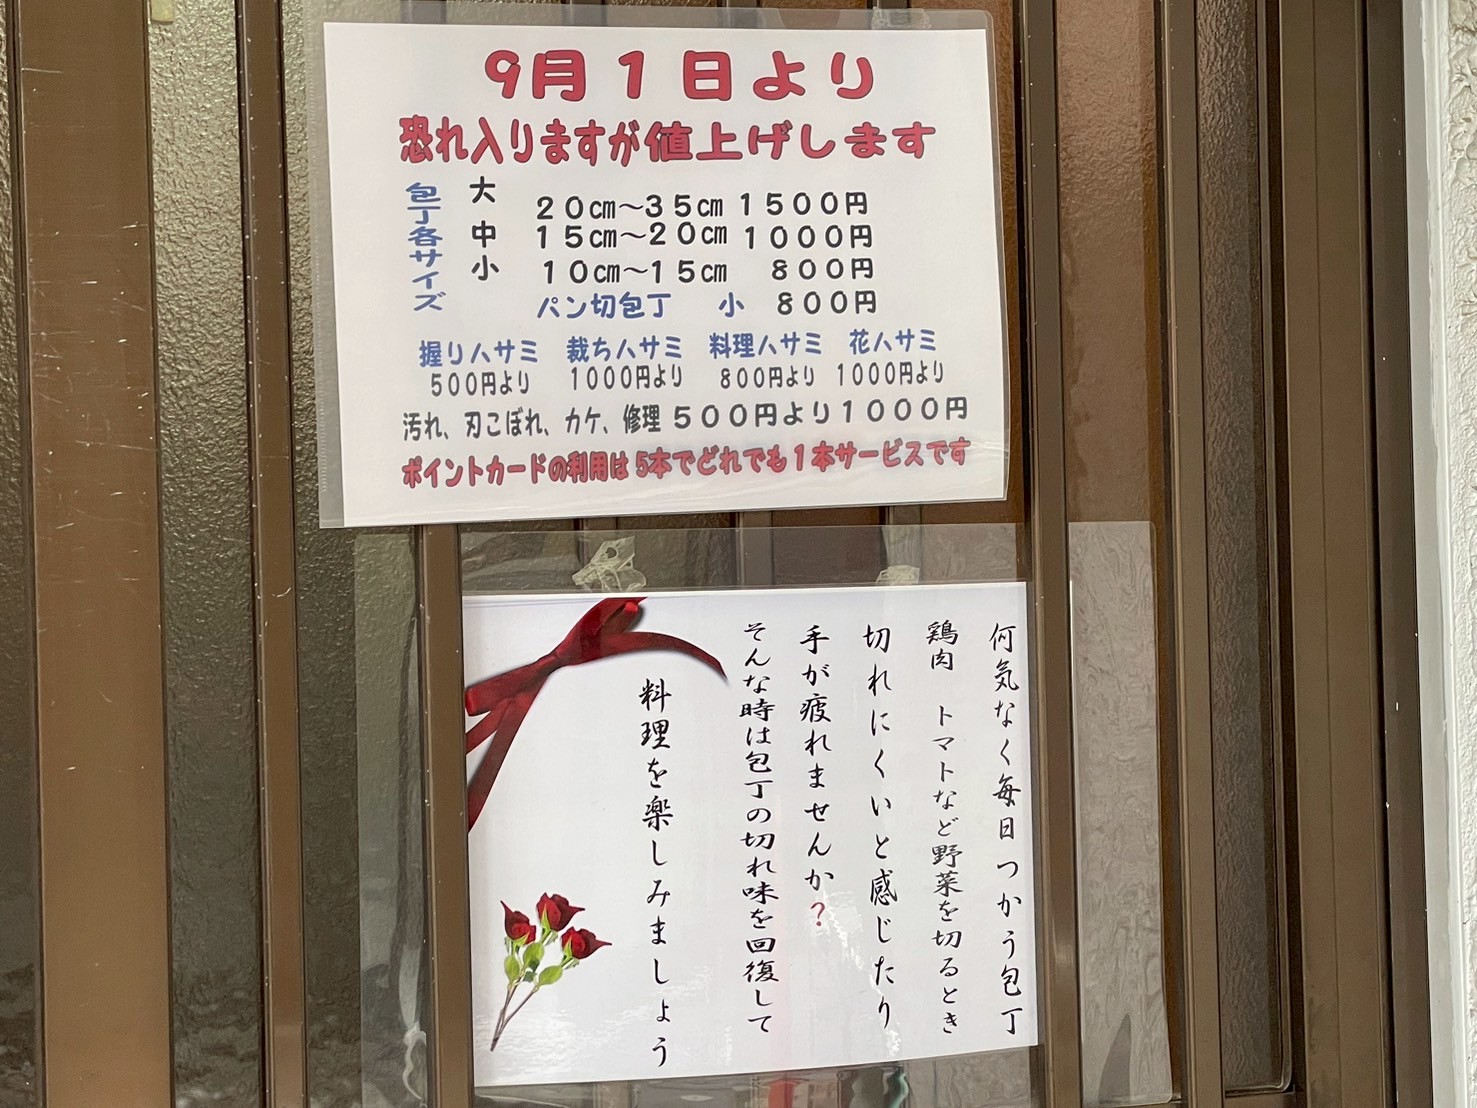 9月1日より
恐れ入りますが値上げします
包丁各サイズ
大 20㎝～35㎝ 1500円
中 15㎝～20㎝ 1000円
小 10㎝～15㎝ 800円
パン切包丁 小 800円
握りハサミ 裁ちハサミ 料理ハサミ 花ハサミ
500円より 1000円より 800円より 1000円より
汚れ、刃こぼれ、カケ、修理 500円より1000円
ポイントカードの利用は5本でどれでも1本サービスです
何気なく毎日つかう包丁
鶏肉 トマトなど野菜を切るとき
切れにくいと感じたり
手が疲れませんか?
そんな時は包丁の切れ味を回復して
料理を楽しみましょう